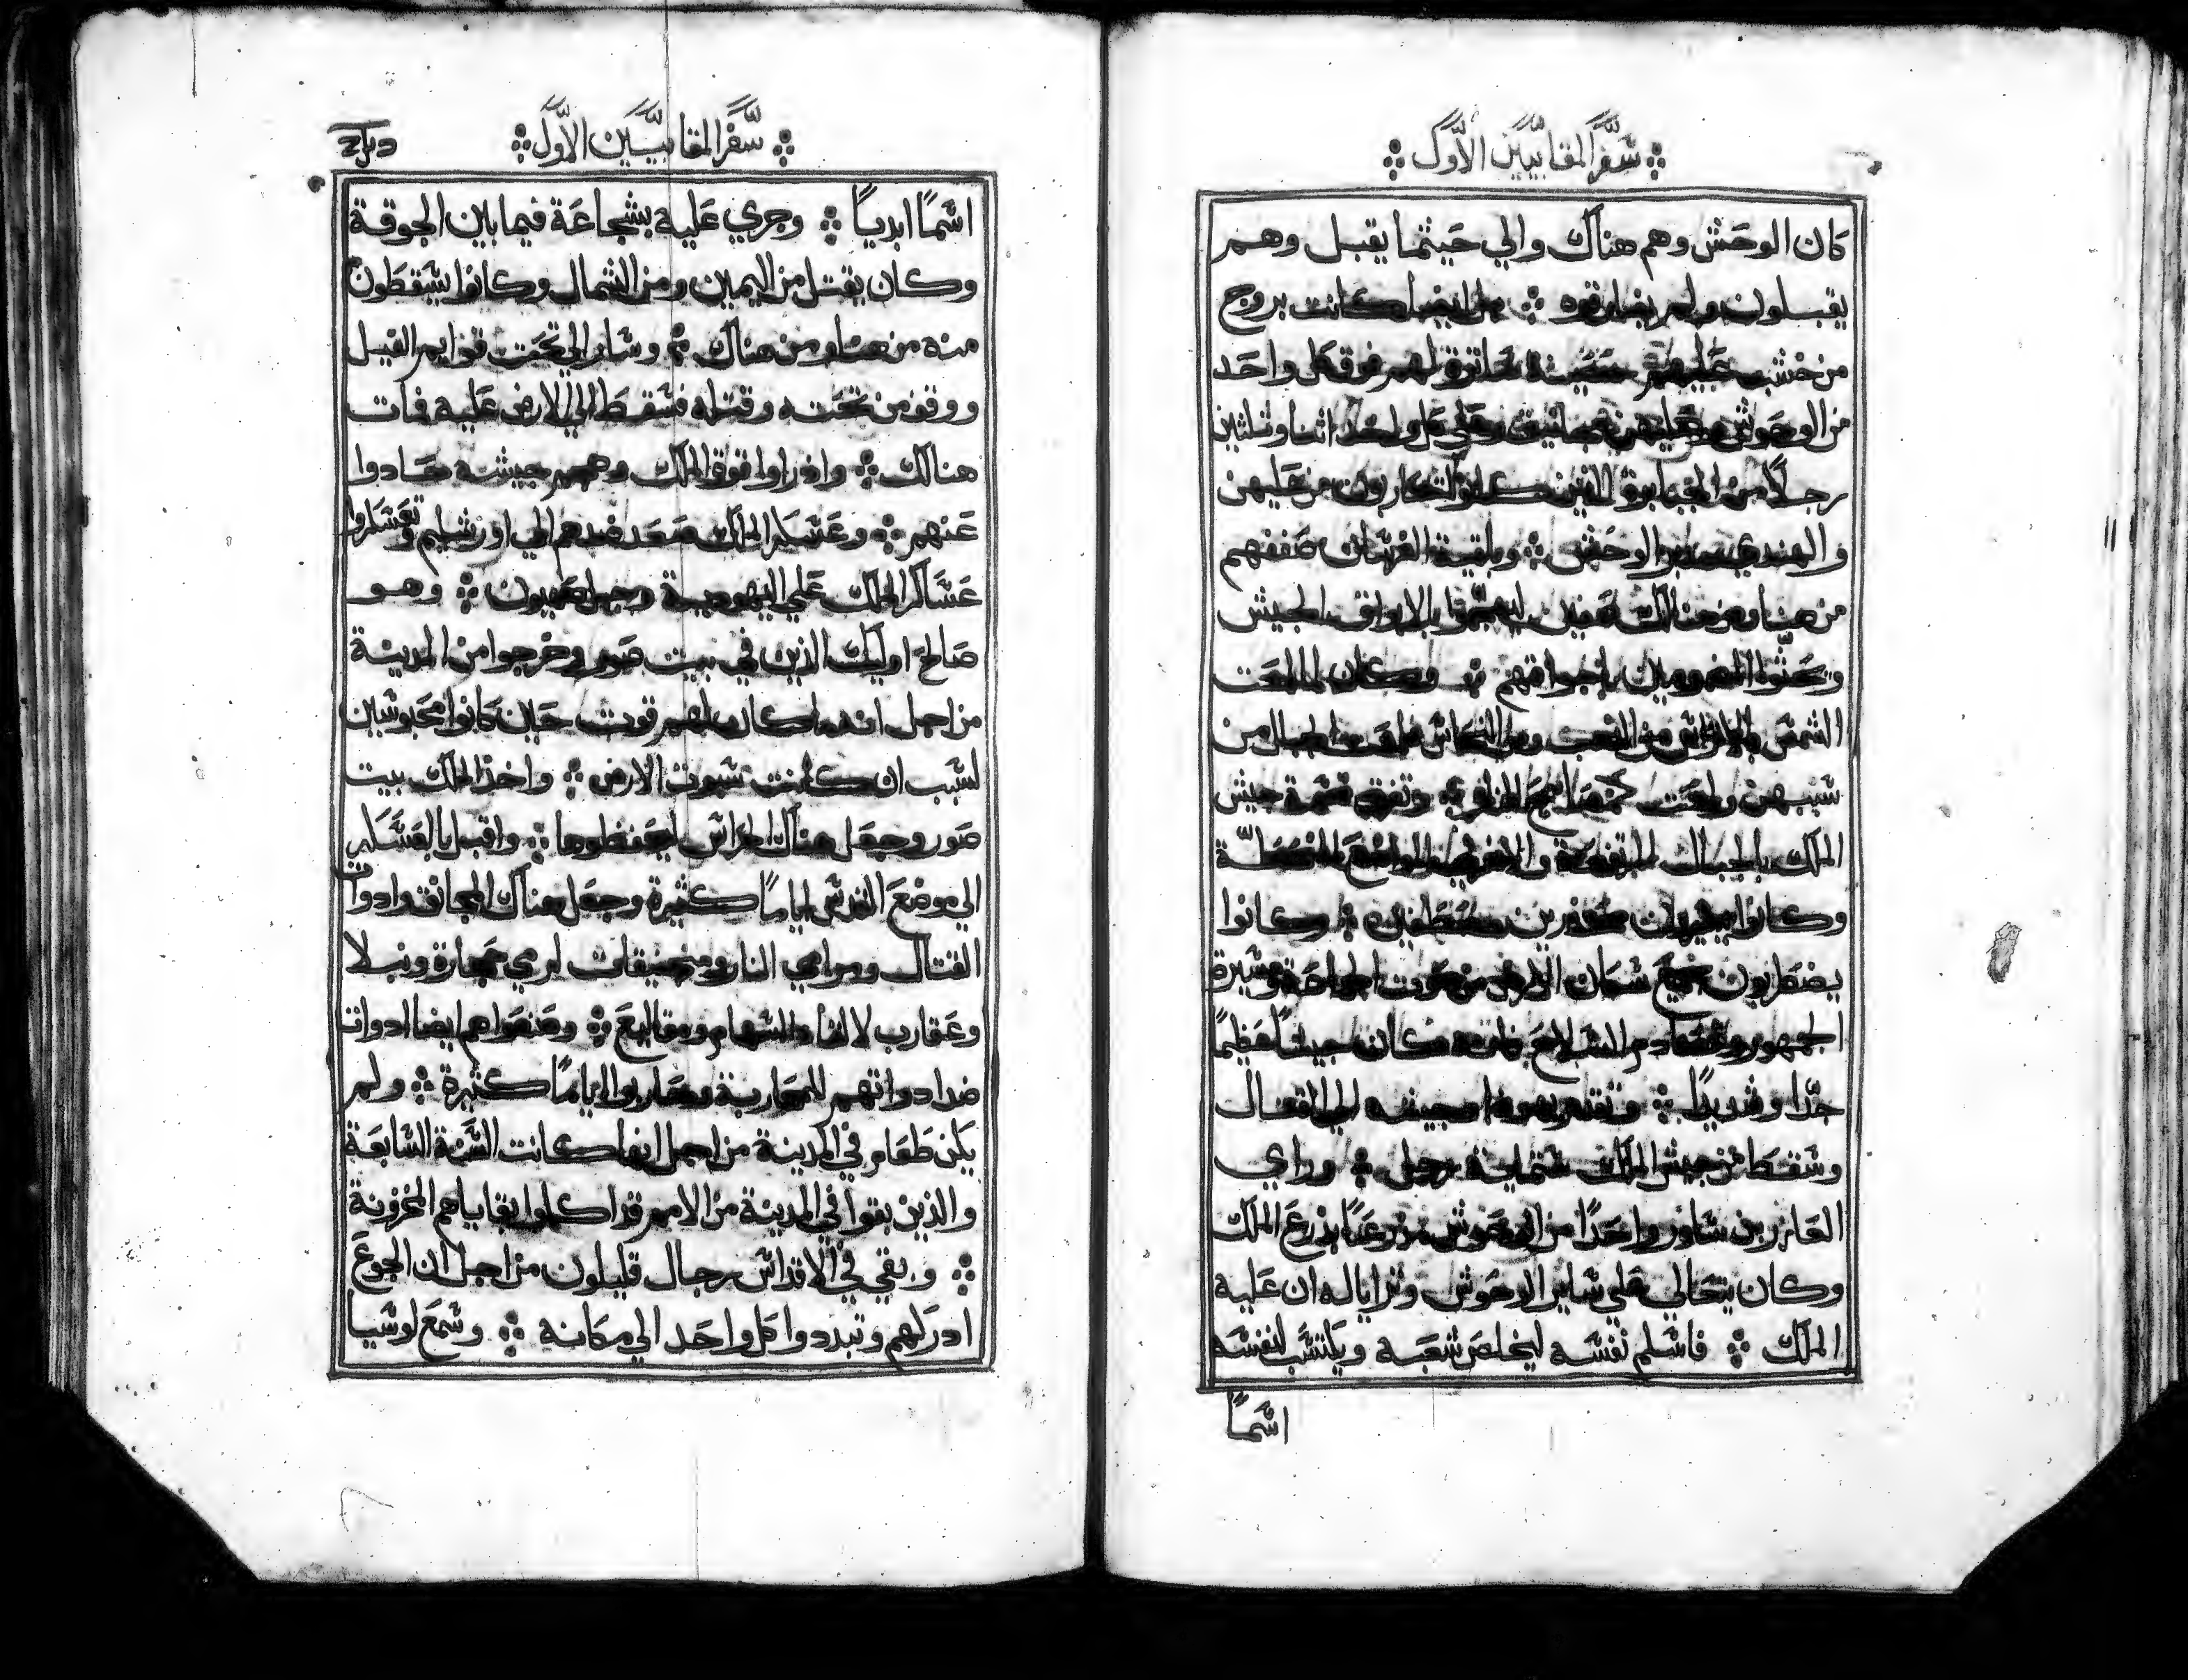 سفر المقابيين الاول
كان الوحش وهم هناك والي حيثما يقبل وهم
يقبلون ولم يفارقوه ايضا كانت بروج
من خشب عليهم فوق كل واحد
من الوحوش وعلي كل واحد اثنا وثلثين
رجلاً من الجبابرة الذين كانوا يتحاربون من عليهن
والهندي مدبر الوحش وباقية الفرسان صففهم
من هنا ومن هنالك صفين بالابواق الجيش
وكان لما لمعت
الشمس من الذهب ومن النحاس الجبال من
سببهن ولمعت كمصابيح النار وتفرق قسمة جيش
الملك بالجبال المرتفعة المواضع
وكانوا وكانوا
يضطربون جميع سكان الارض من صوت
الجمهور السلاح كان جيشاً عظيماً
جدّا وشديدًا وتقدم يهودا وجيشه الي القتال
وسقط من جيش الملك ستماية رجل وراي
العازر بن ساور واحدًا من الوحوش مدرعًا بدرع الملك
وكان يتعالي علي ساير الوحوش وترايا له ان عليه
الملك فاسلم نفسه ليخلص شعبه ويكتسب لنفسه
اسماً
سفر المقابيين الاول
اسماً ابدياً وجري عليه بشجاعة فيما بين الجوقة
وكان يقتل من اليمين ومن الشمال وكانوا يسقطون
منه من هنا ومن هناك وسار الي تحت قوايم الفيل
ووقف من تحته وقتله فسقط الي الارض عليه فمات
هنالك واذ راوا قوة الملك وهم جيشه حادوا
عنهم وعسكر الملك صعد ضدهم الي اورشليم وتعسكروا
عساكر الملك علي اليهودية وجبل صهيون وهو
صالح اوليك الذين في بيت صور وخرجوا من المدينة
من اجل انه كان لهم قوت حين كانوا محبوسين
لسبب ان كانت سبوت الارض واخذ الملك بيت
صور وجعل هناك احراس ليحفظوها واقبل بالعسكر
الي موضع القدس اياماً كثيرة وجعل هناك المجانق وادوات
القتال ومرامي النار ومنجنيقات لرمي حجارة ونبلا
وعقارب لالقاء السهام ومقاليع وصنعوا هم ايضا ادوات
ضد ادواتهم للمحاربة وحاربوا اياماً كثيرة ولم
يكن طعام في المدينة من اجل انها كانت السنة السابعة
والذين بقوا في المدينة من الامم قد اكلوا بقاياهم المخزونة
وبقي في الاقداس رجال قليلون من اجل ان الجوع
ادركهم وتبددوا كل واحد الي مكانه وسمع لوسيا